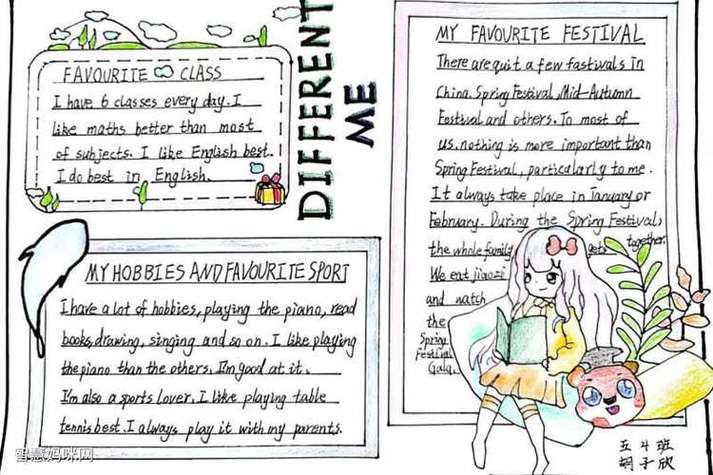 FAVOURITE CLASS
I have 6 classes every day. I
like maths better than most
of subjects. I like English best.
I do best in English.
DIFFERENT
ME
MY HOBBIES AND FAVOURITE SPORT
I have a lot of hobbies, playing the piano, read
books, drawing, singing and so on. I like playing
the piano than the others. I'm good at it.
I'm also a sports lover. I like playing table
tennis best. I always play it with my parents.
MY FAVOURITE FESTIVAL
There are quit a few fastivals in
China. Spring Festival, Mid-Autumn
Festival and others. To most of
us, nothing is more important than
Spring Festival, particularly to me.
It always take place in January or
February. During the Spring Festival,
the whole family gets together.
We eat jiaozi
and watch
the
Spring
Festival
Gala.
五4班
胡子欣
智慧妈咪网